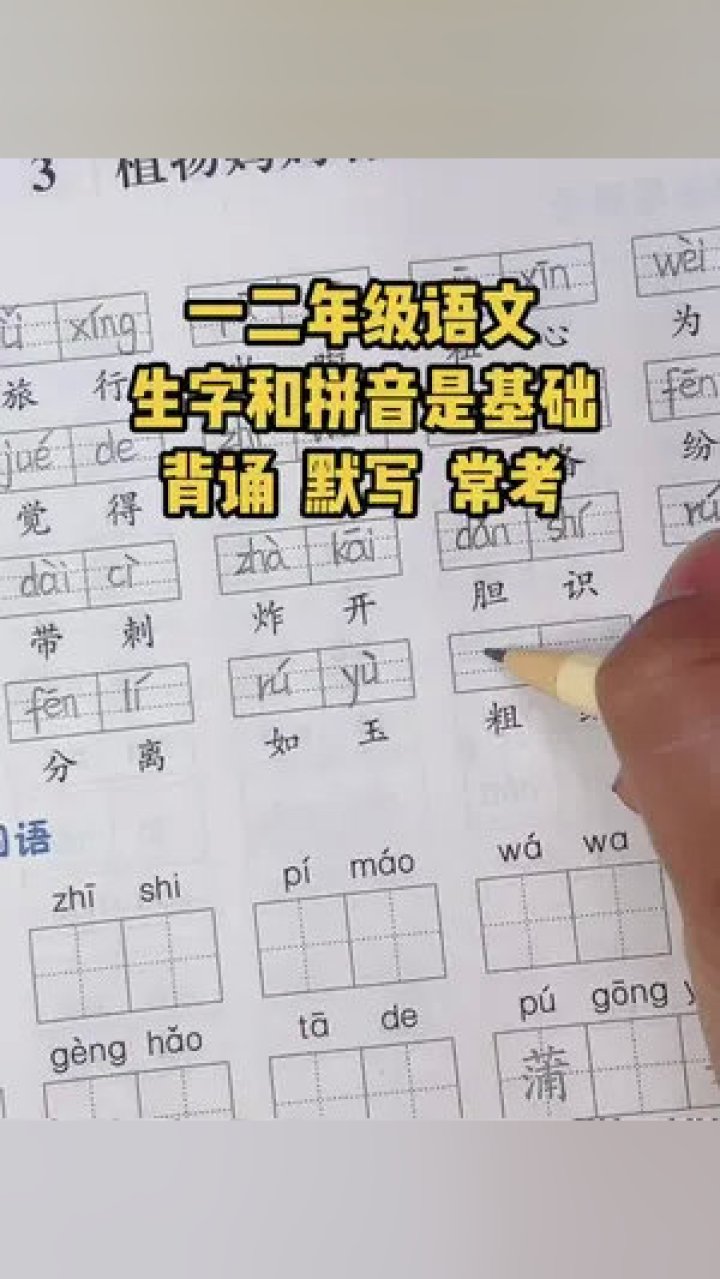 3 植物妈妈
一二年级语文
生字和拼音是基础
背诵 默写 常考
xíng xīn wèi
旅 行 心 为
jué de fēn
觉 得 纷
dài cì zhà kāi dǎn shí rú
带 刺 炸 开 胆 识
fēn lí rú yù
分 离 如 玉 粗
语
zhī shi pí máo wá wa
gèng hǎo tā de pú gōng
蒲